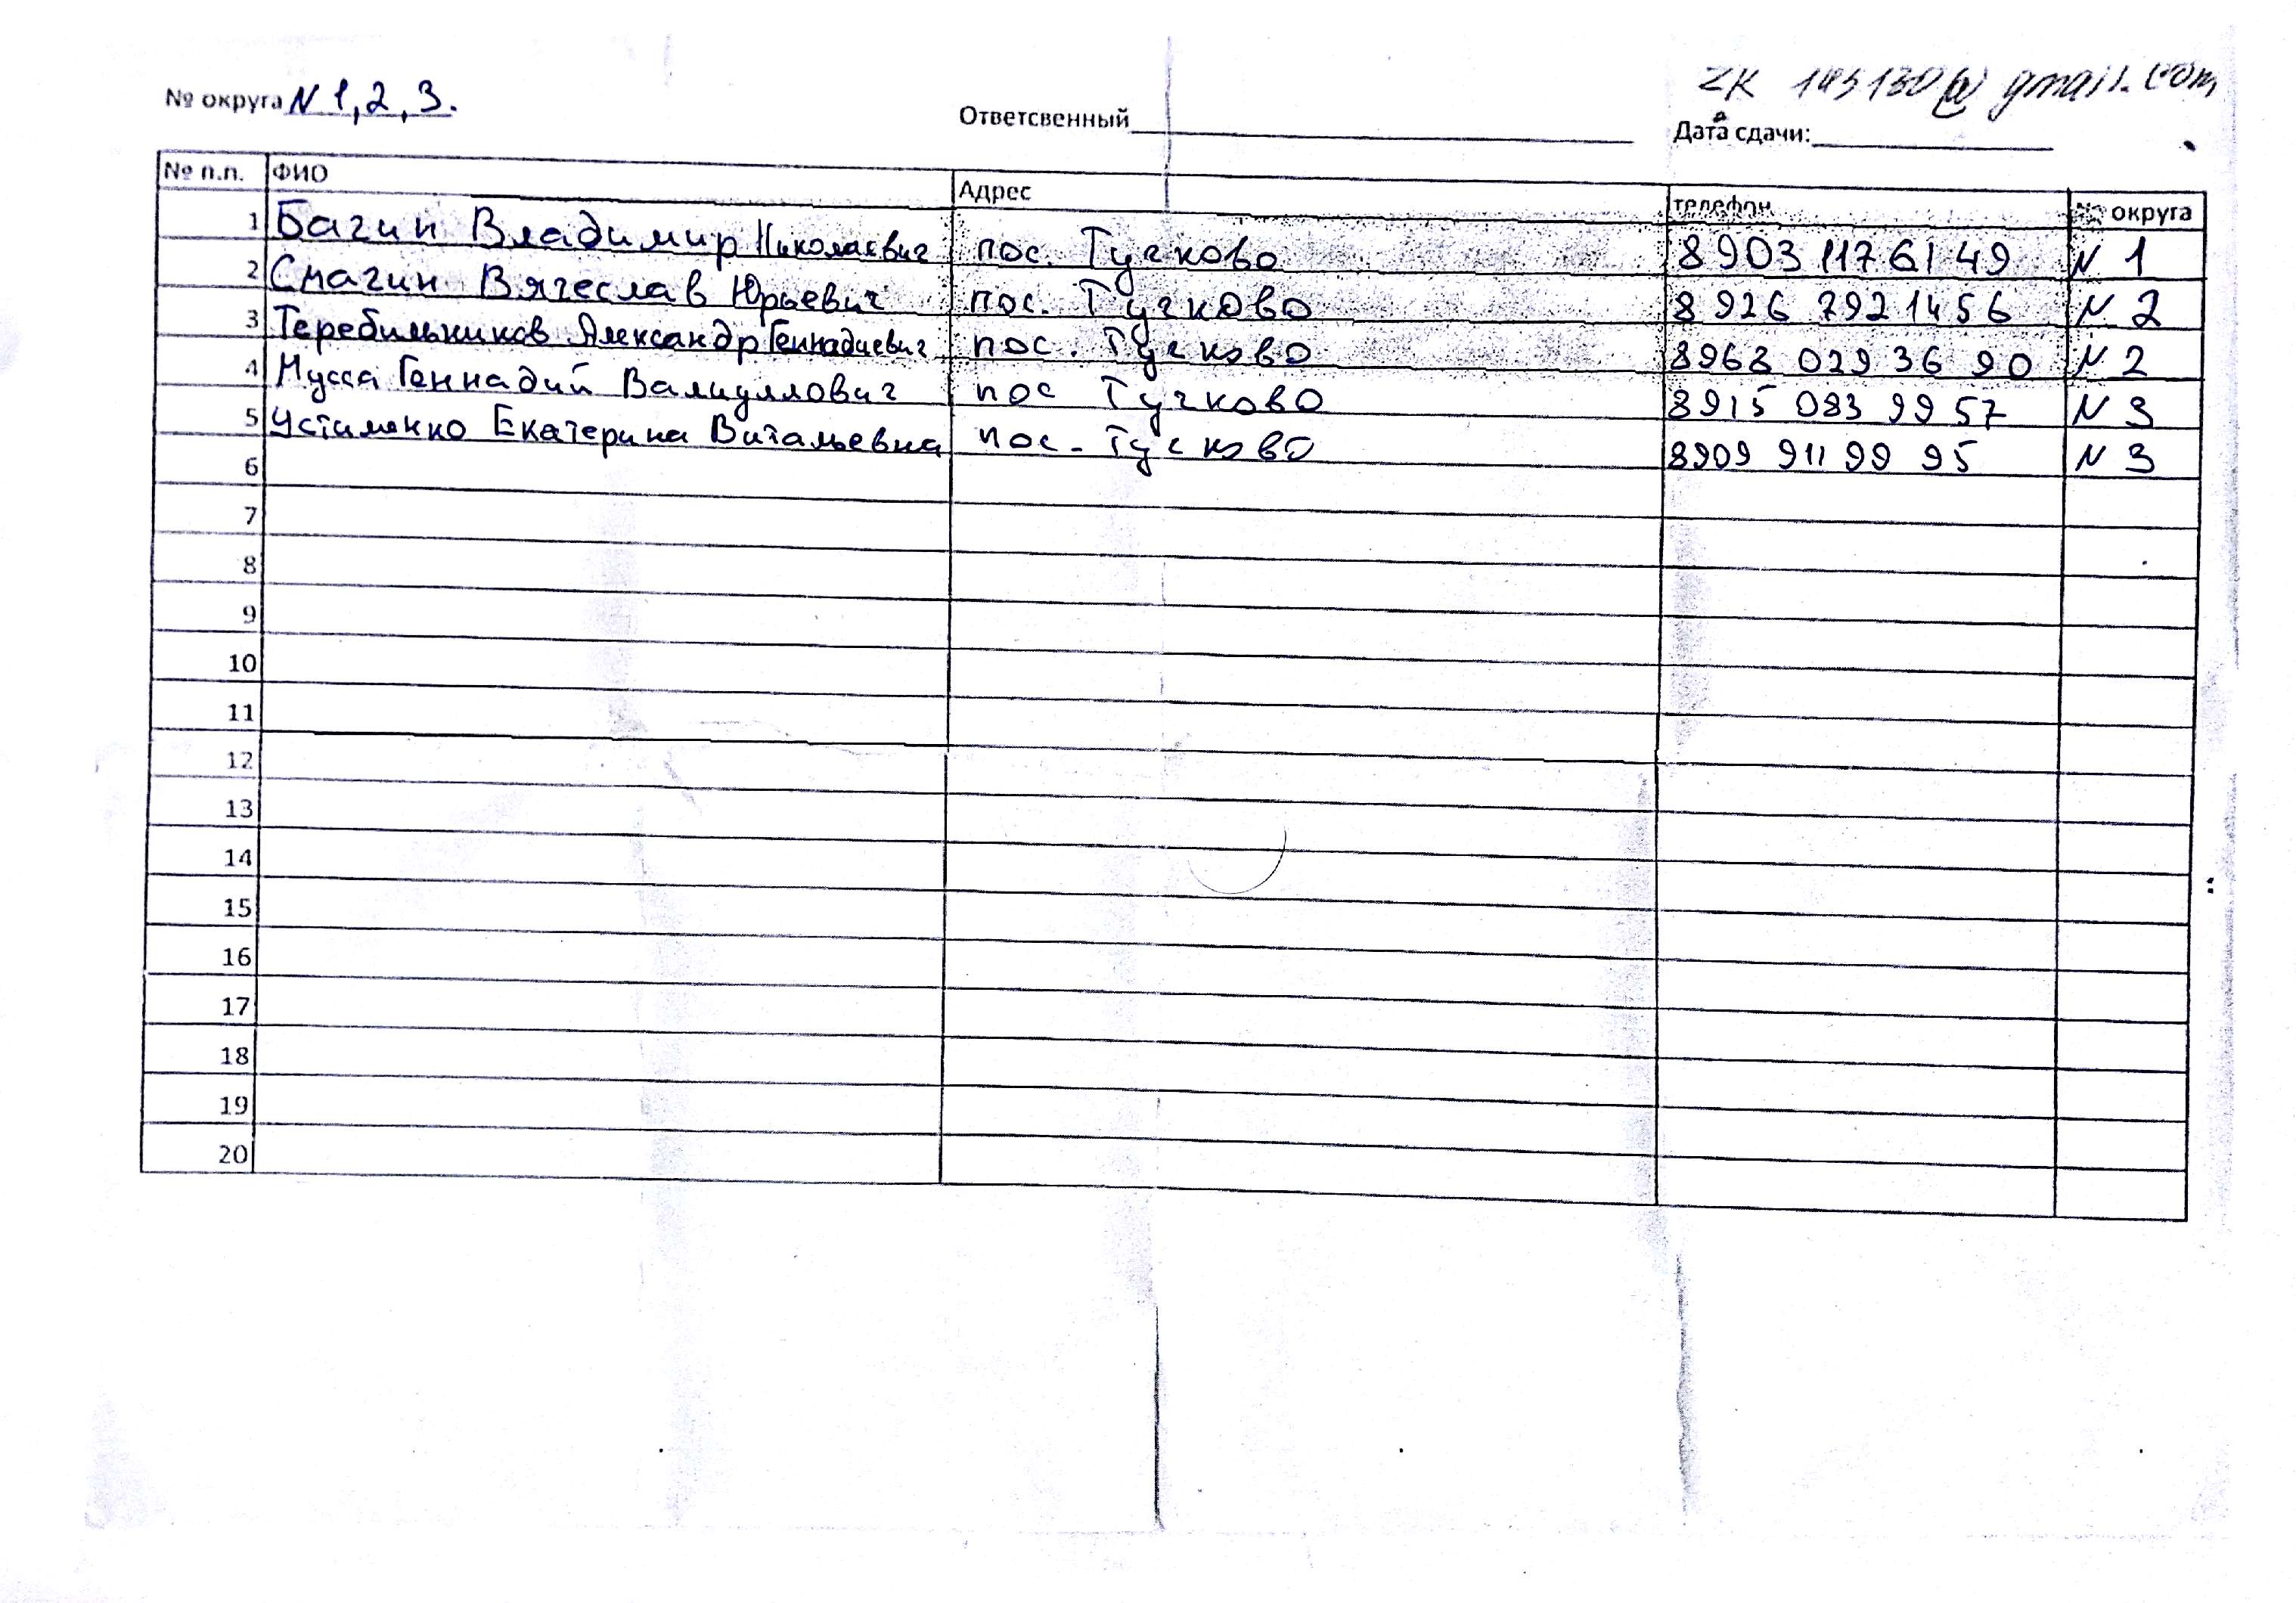 ZK 143130@gmail.com
№ округа N 1, 2, 3. Ответсвенный Дата сдачи:
№ п.п. ФИО Адрес телефон № округа
1 Багин Владимир Николаевич пос. Тучково 8903 117 61 49 N 1
2 Смагин Вячеслав Юрьевич пос. Тучково 8 926 292 14 56 N 2
3 Теребильников Александр Геннадиевич пос. Тучково 8968 029 36 90 N 2
4 Мусса Геннадий Валиуллович пос Тучково 8915 083 99 57 N 3
5 Устименко Екатерина Витальевна пос. Тучково 8909 911 99 95 N 3
6
7
8
9
10
11
12
13
14
15
16
17
18
19
20